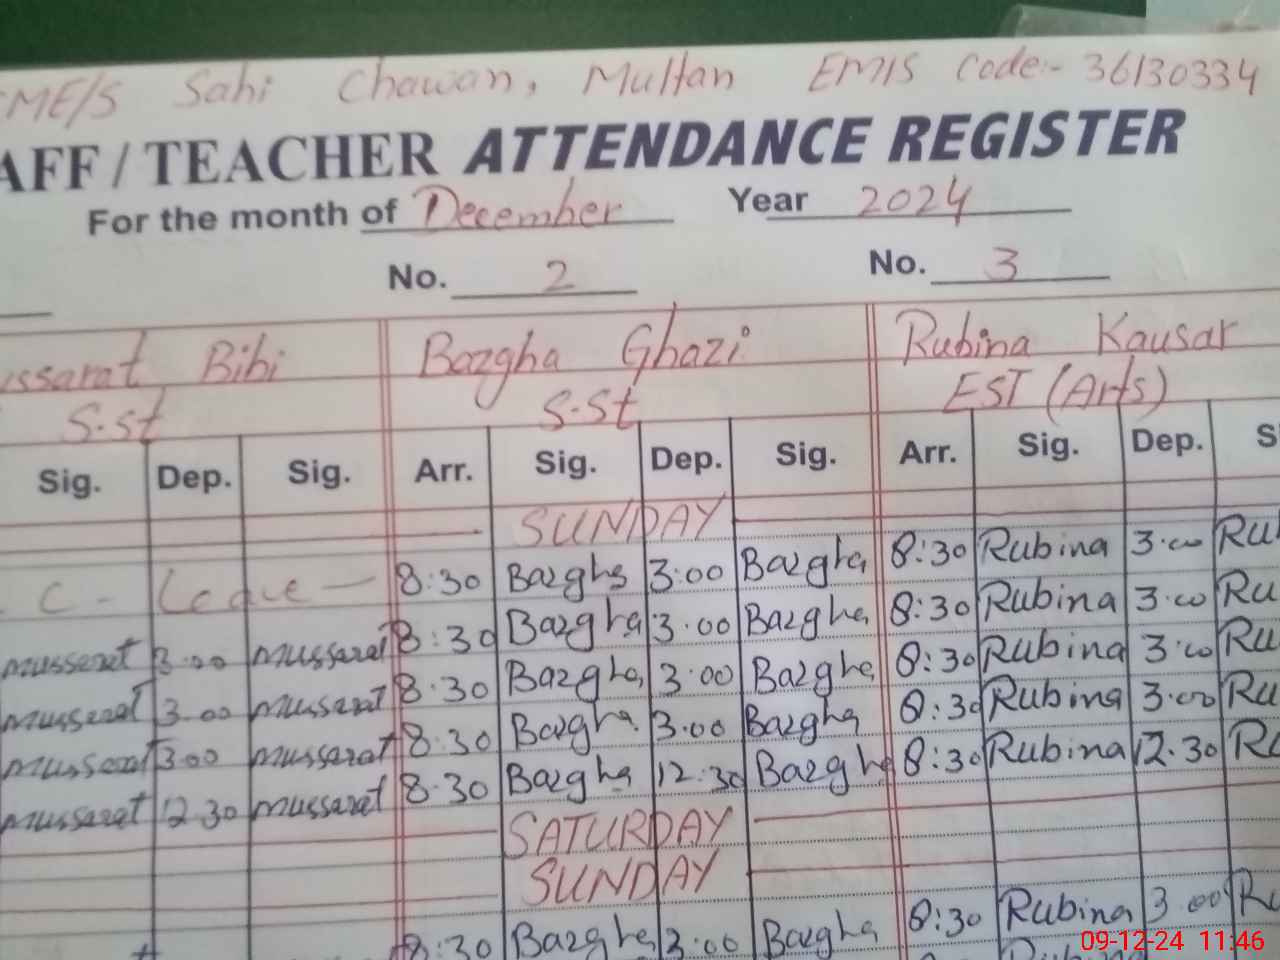 ME/S Sahi Chawan, Multan EMIS Code:- 36130334
AFF / TEACHER ATTENDANCE REGISTER
For the month of December Year 2024
No. 2 No. 3
ussarat Bibi Bazgha Ghazi Rubina Kausar
S.st S.St EST (Arts)
Sig. Dep. Sig. Arr. Sig. Dep. Sig. Arr. Sig. Dep. S
SUNDAY
C - Leave 8:30 Bazgha 3:00 Bazgha 8:30 Rubina 3.00 Ru
mussarat 3.00 mussarat 8:30 Bazgha 3.00 Bazgha 8:30 Rubina 3.00 Ru
mussarat 3.00 mussarat 8.30 Bazgha 3.00 Bazgha 8:30 Rubina 3.00 Ru
mussarat 3.00 mussarat 8:30 Bazgha 3.00 Bazgha 8:30 Rubina 3.00 Ru
mussarat 12.30 mussarat 8.30 Bazgha 12.30 Bazgha 8:30 Rubina 12.30 Ru
SATURDAY
SUNDAY
8:30 Bazgha 3:00 Bazgha 8:30 Rubina 3.00 Ru
09-12-24 11:46